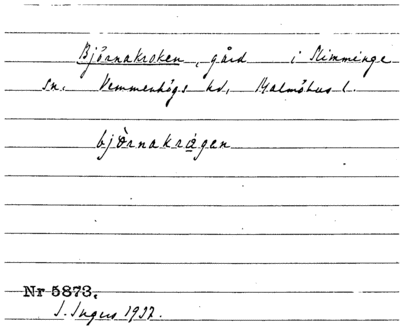 Björnakroken, gård i Slimminge
sn. Vemmenhögs hd, Malmöhus l.
björnakrågen
Nr 5873.
S. Ingers 1932.